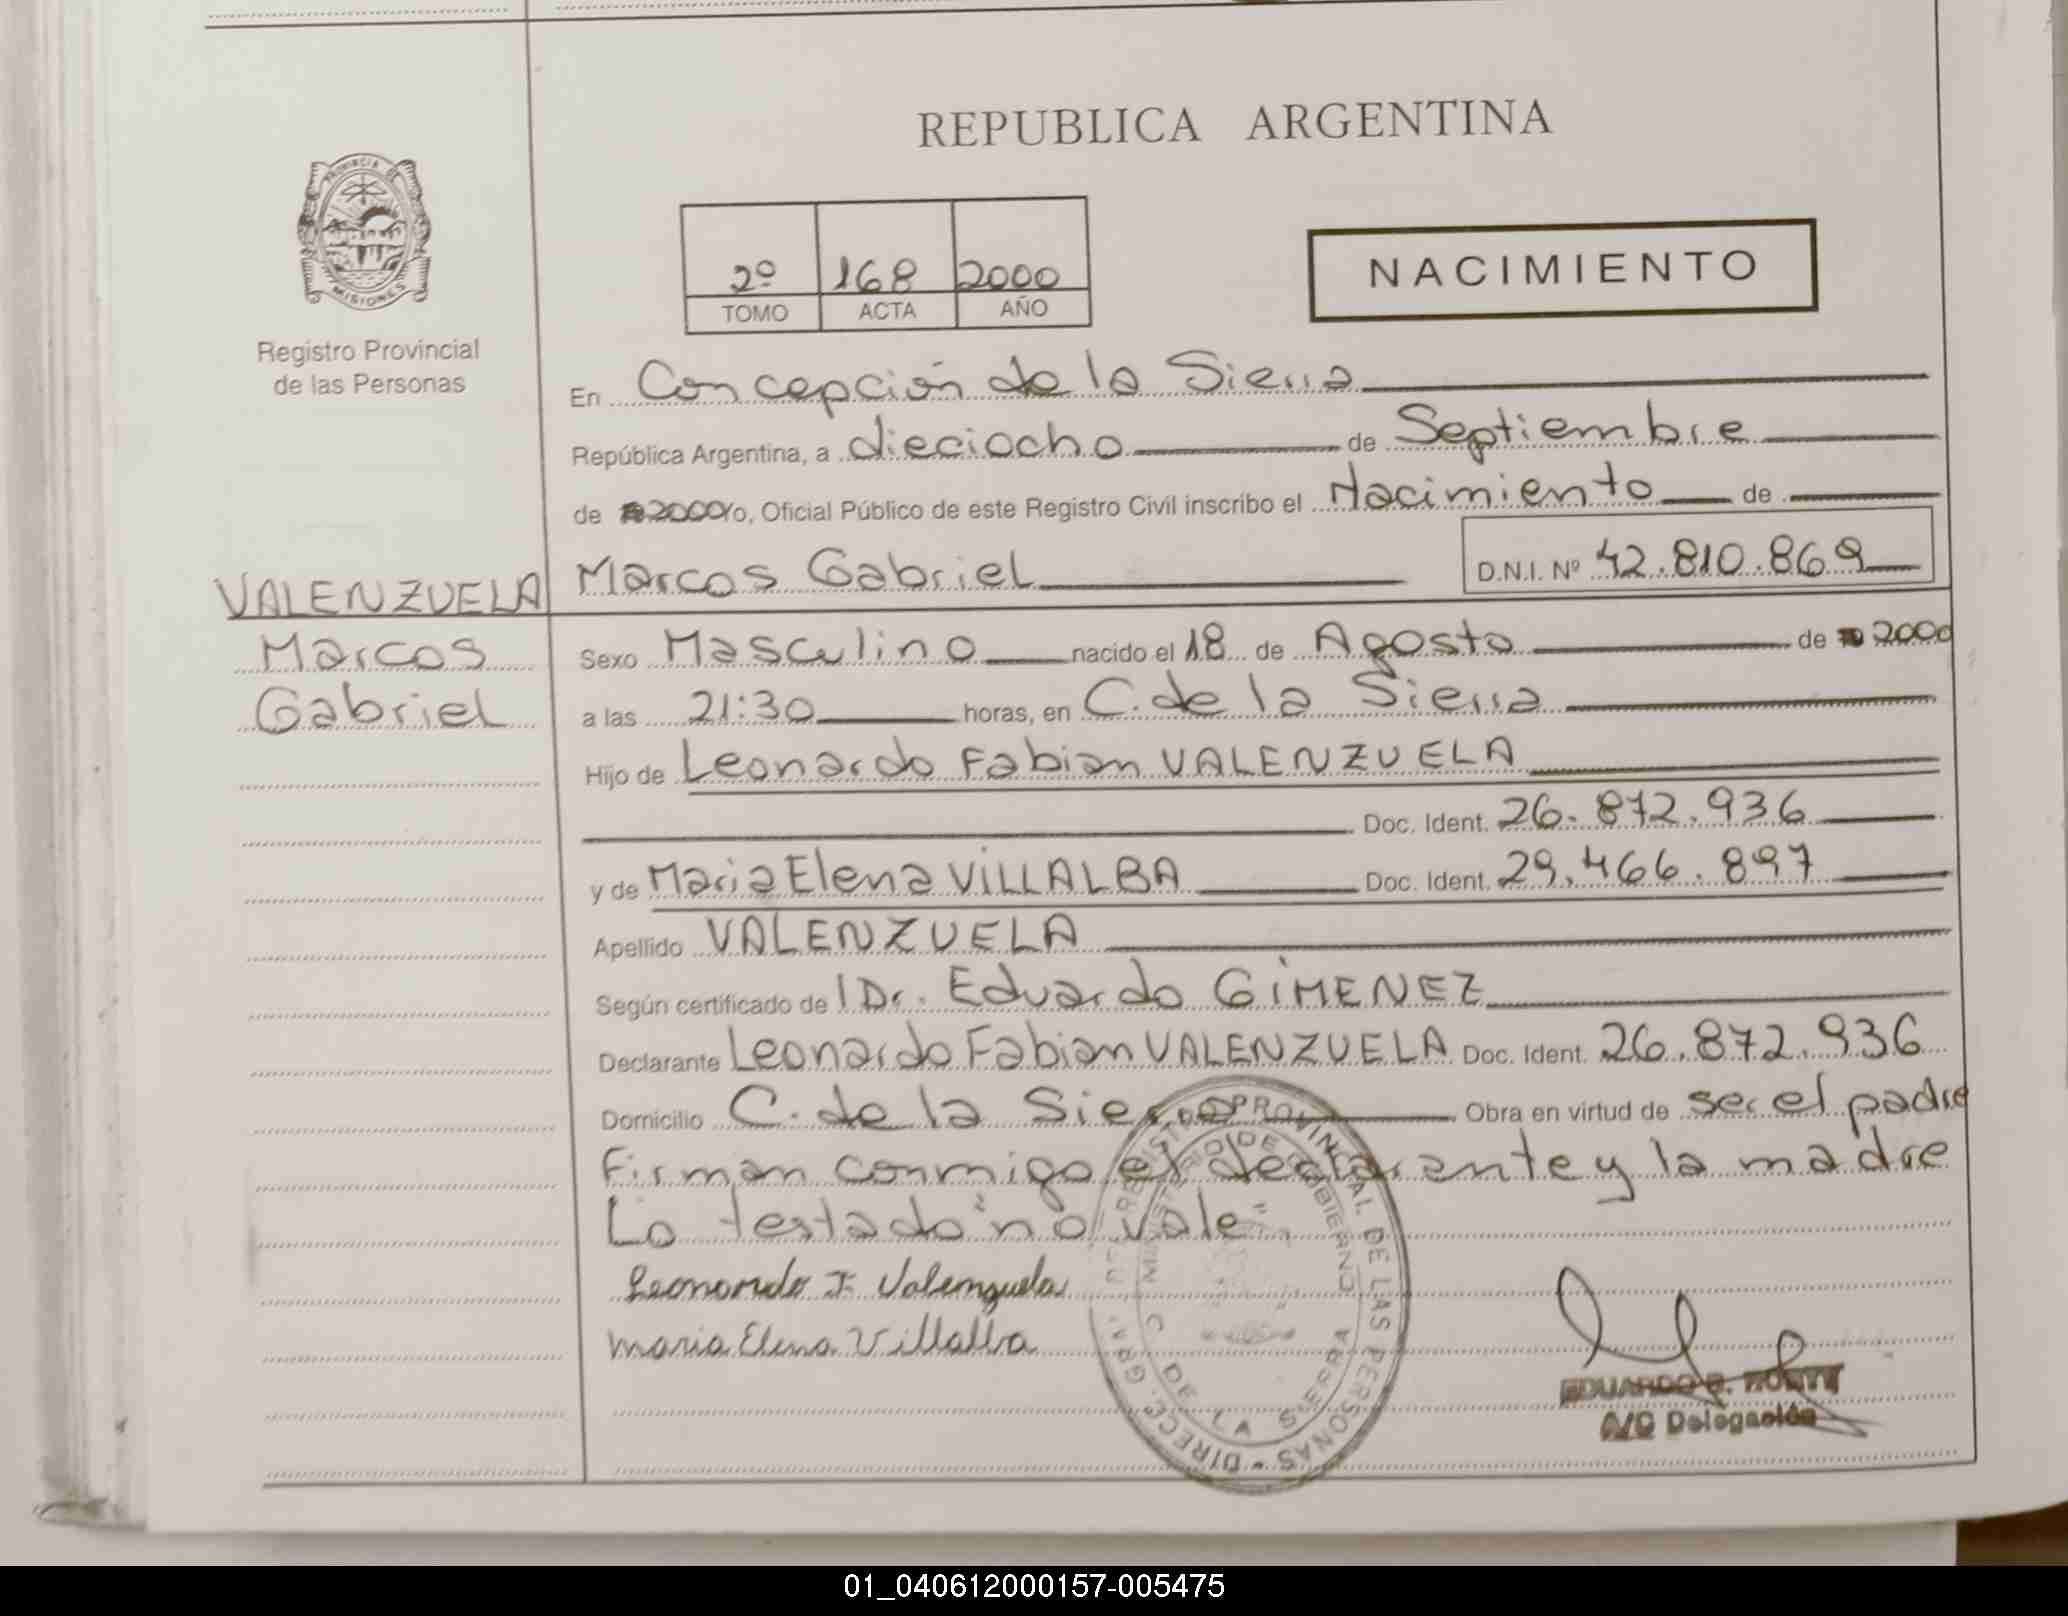 REPUBLICA ARGENTINA
PROVINCIA DE
MISIONES
Registro Provincial
de las Personas
2º 168 2000
TOMO ACTA AÑO
NACIMIENTO
En Concepción de la Sierra
República Argentina, a dieciocho de Septiembre
de 2000 Yo, Oficial Público de este Registro Civil inscribo el Nacimiento de
Marcos Gabriel D.N.I. Nº 42.810.869
VALENZUELA
Marcos
Gabriel
Sexo Masculino nacido el 18 de Agosto de 2000
a las 21:30 horas, en C. de la Sierra
Hijo de Leonardo Fabian VALENZUELA
Doc. Ident. 26.872.936
y de Maria Elena VILLALBA Doc. Ident. 29.466.897
Apellido VALENZUELA
Según certificado de Dr. Eduardo GIMENEZ
Declarante Leonardo Fabian VALENZUELA Doc. Ident. 26.872.936
Domicilio C. de la Sierra Obra en virtud de ser el padre
Firman conmigo el declarante y la madre
Lo testado "no" vale
Leonardo F. Valenzuela
Maria Elena Villalba
DIRECC. GRAL. DEL REGISTRO PROVINCIAL DE LAS PERSONAS
MINISTERIO DE GOBIERNO
C. DE LA SIERRA
EDUARDO
A/C Delegación
01_040612000157-005475